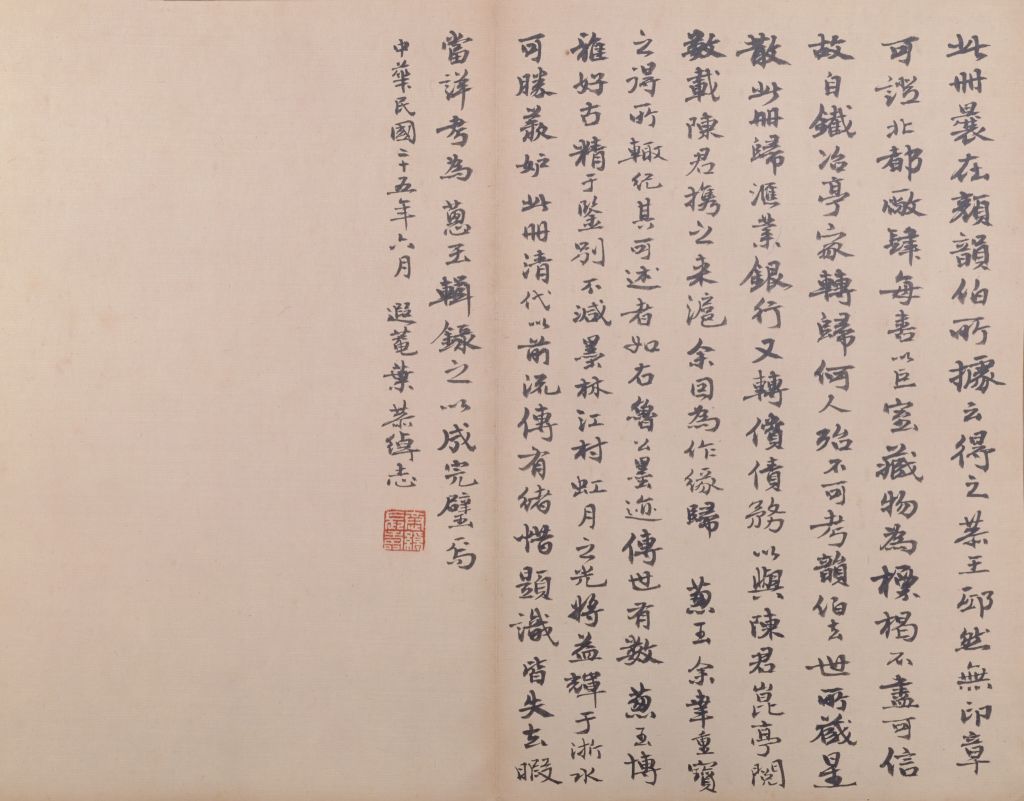 此冊曩在顏韻伯所據云得之恭王邸然無印章
可證北都廠肆每喜以巨室藏物為標榜不盡可信
故自鐵冶亭家轉歸何人殆不可考韻伯去世所藏星
散此冊歸滙業銀行又轉償債務以與陳君崑亭閱
數載陳君攜之來滬余因為作緣歸 蔥玉余幸重寶
之得所輙紀其可述者如右魯公墨迹傳世有數 蔥玉博
雅好古精于鑒別不減墨林江村虹月之光將益輝于浙水
可勝羨妒此冊清代以前流傳有緒惜題識皆失去暇
當詳考為 蔥玉輯錄之以成完璧焉
中華民國二十五年六月 遐菴葉恭綽志